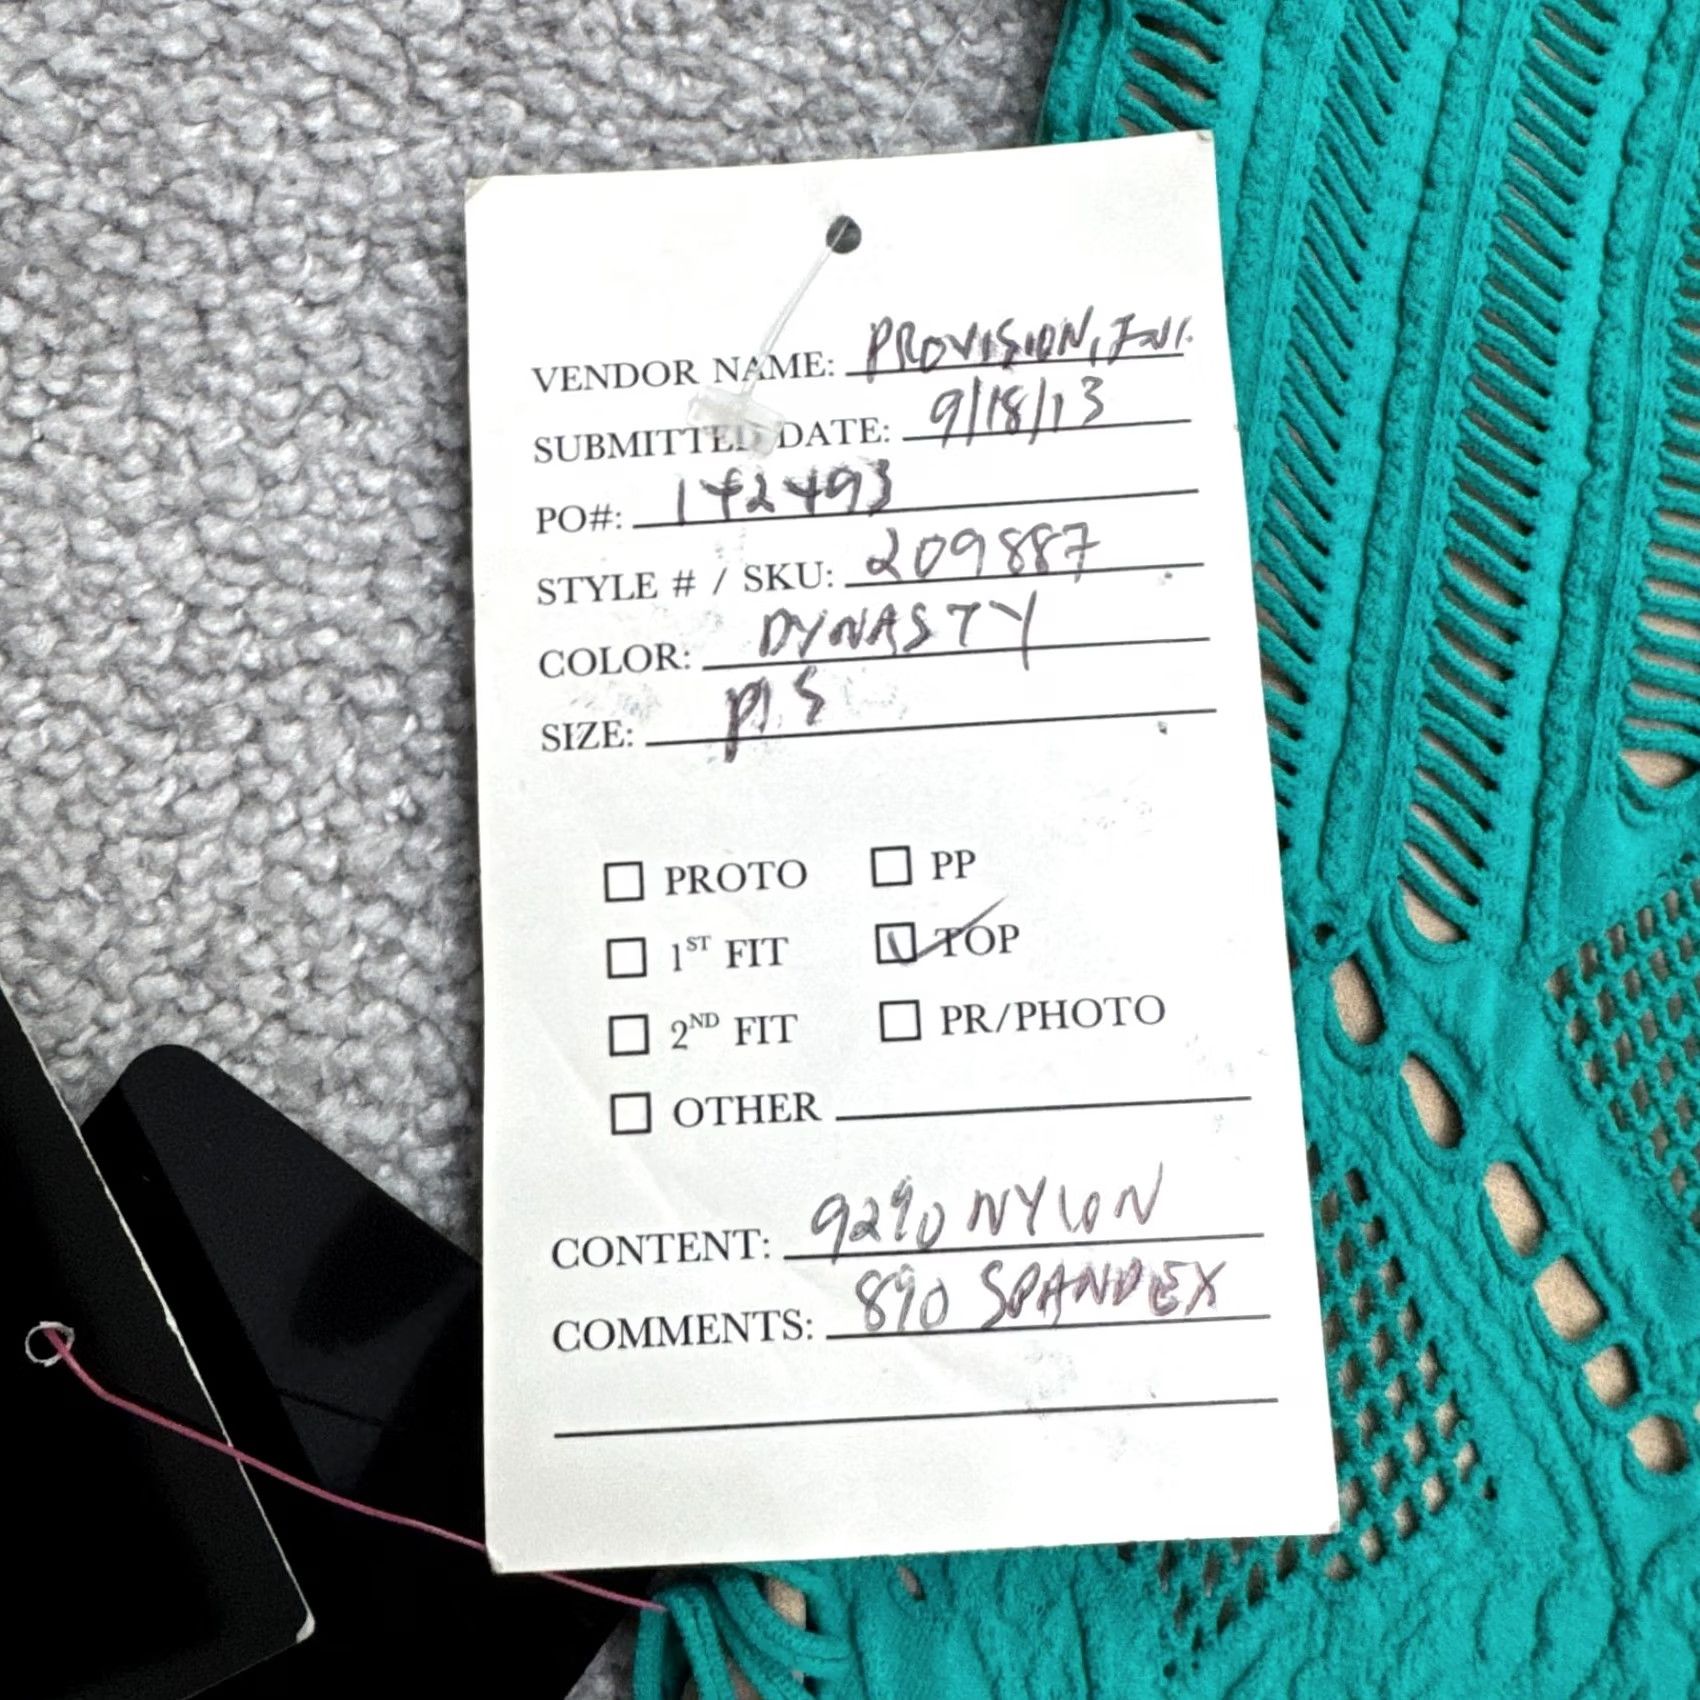 VENDOR NAME: PROVISION, Inc.
SUBMITTED DATE: 9/18/13
PO#: 142493
STYLE # / SKU: 209887
COLOR: DYNASTY
SIZE:
PROTO PP
1ST FIT TOP
2ND FIT PR/PHOTO
OTHER
CONTENT: 92% NYLON
COMMENTS: 8% SPANDEX